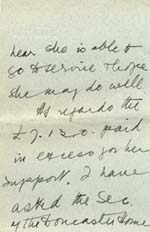 hear she is able to
go to service & hope
she may do well.
As regards the
£7.12.0. paid
in excess for her
support. I have
asked the Sec.
of the Doncaster Home